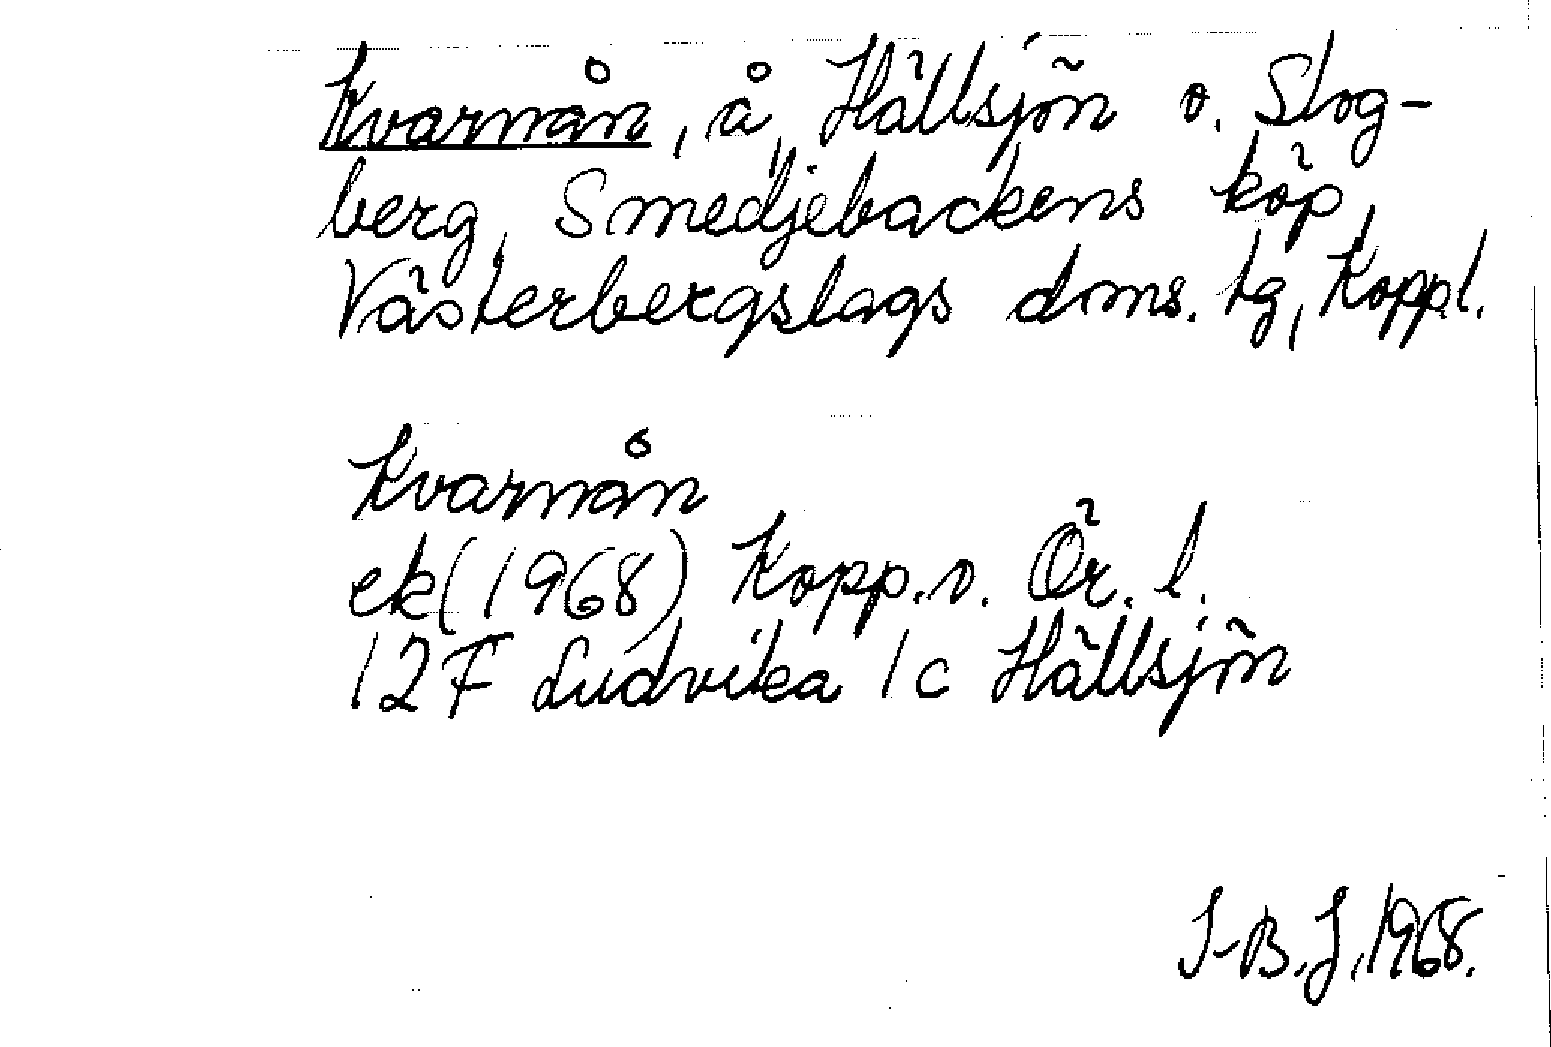 Kvarnån, å, Hällsjön o. Slog-
berg, Smedjebackens köp,
Västerbergslags doms. tg, Koppl.
Kvarnån
ek (1968) Kopp. o. Ör. l.
12F Ludvika 1c Hällsjön
I-B. J. 1968.